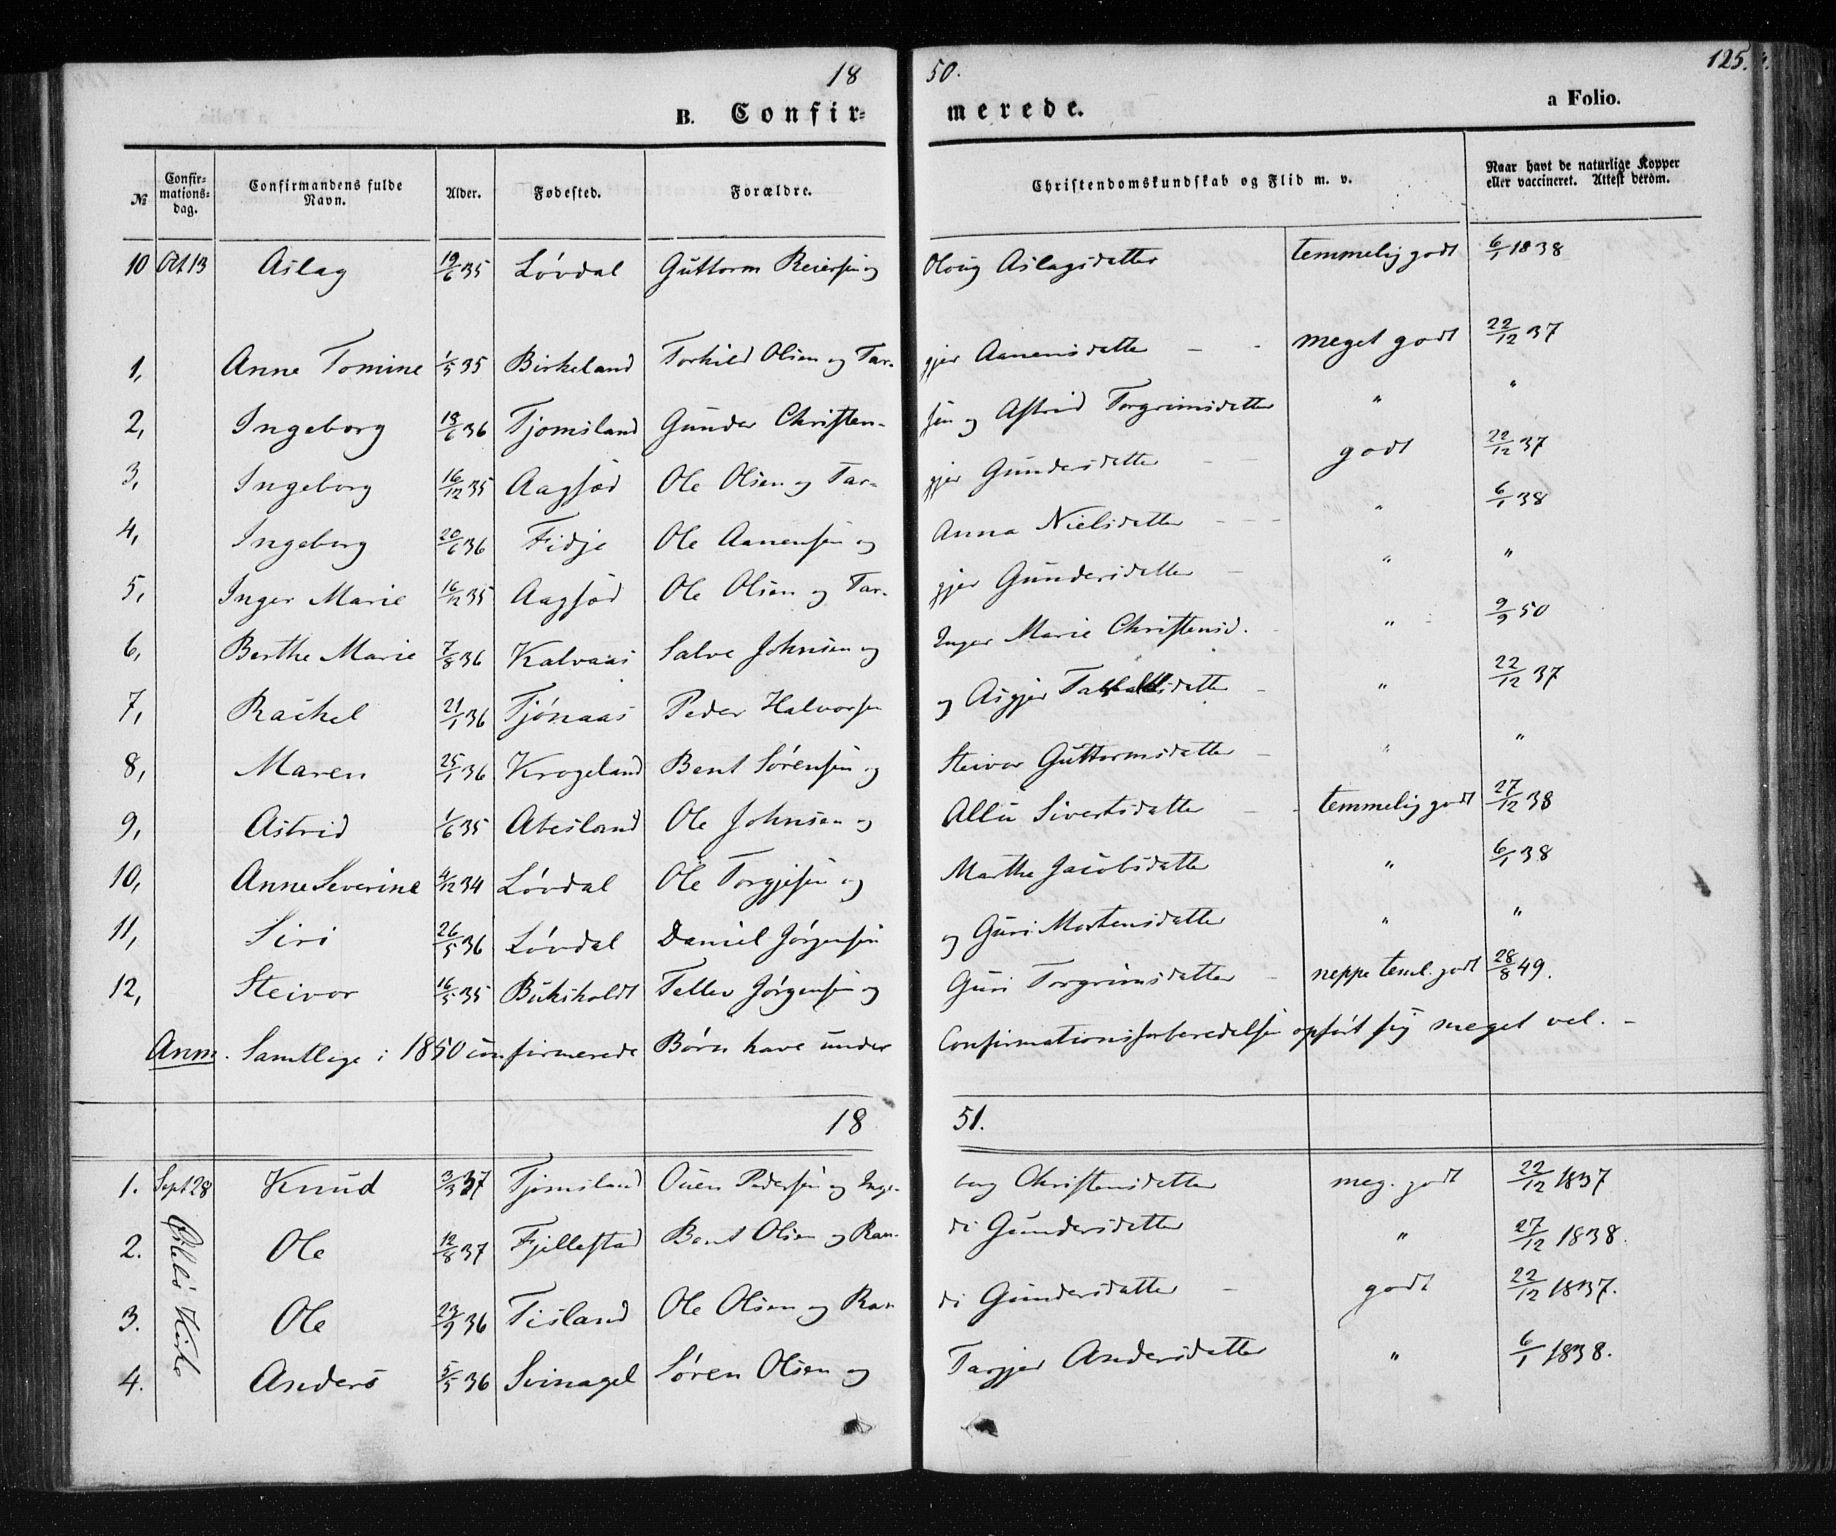 1850. 125.
B. Confirmerede. a Folio.
№ Confirmationsdag. Confirmandens fulde Navn. Alder. Fødested. Forældre. Christendomskundskab og Flid m. v. Naar havt de naturlige Kopper eller vaccineret. Attest derom.
10 Oct 13 Aslag 19/6 35 Løvdal Guttorm Reiersen og Oloug Aslagsdatter temmelig godt 6/1 1838
1, Anne Tomine 1/5 35 Birkeland Torkild Olsen og Targjer Aanensdatter - - meget godt 22/12 37
2, Ingeborg 18/6 36 Tjomsland Gunder Christensen og Astrid Torgrimsdatter " "
3, Ingeborg 16/12 35 Aagsød Ole Olsen og Targjer Gundersdatter - - godt 22/12 37
4, Ingeborg 20/6 36 Fidje Ole Aanensen og Anna Nielsdatter - - - " 6/1 38
5, Inger Marie 16/12 35 Aagsød Ole Olsen og Targjer Gundersdatter - " "
6, Berthe Marie 7/8 36 Kalvaas Salve Johnsen og Inger Marie Christensd. " 9/9 50
7, Rachel 21/1 36 Tjønaas Peder Halvorsen og Asgjer datter - " 22/12 37
8, Maren 25/1 36 Krogeland Bent Sørensen og Steivor Guttormsdatter - " "
9, Astrid 1/6 35 Abesland Ole Johnsen og Allu Sivertsdatter - - temmelig godt 27/12 38
10, Anne Severine 4/12 34 Løvdal Ole Torgjesen og Marthe Jacobsdatter " 6/1 38
11, Siri 26/5 36 Løvdal Daniel Jørgensen og Guri Mortensdatter " "
12, Steivor 16/5 35 Buksholdt Tellev Jørgensen og Guri Torgrimsdatter - neppe teml. godt 28/8 49.
Anm. Samtlige i 1850 confirmerede Børn have under Confirmationsforberedelsen opført sig meget vel. -
1851.
1. Sept 28 Knud 3/3 37 Tjomsland Ouen Pedersen og Ingeborg Christensdatter meg. godt 22/12 1837
Øslebø Kirke
2. Ole 12/8 37 Fjellestad Bent Olsen og Randi Gundersdatter " 27/12 1838.
3. Ole 23/9 36 Tisland Ole Olsen og Randi Gundersdatter - godt 22/12 1837.
4. Anders 5/5 36 Svinagel Søren Olsen og Targjer Andersdatter " 6/1 1838.